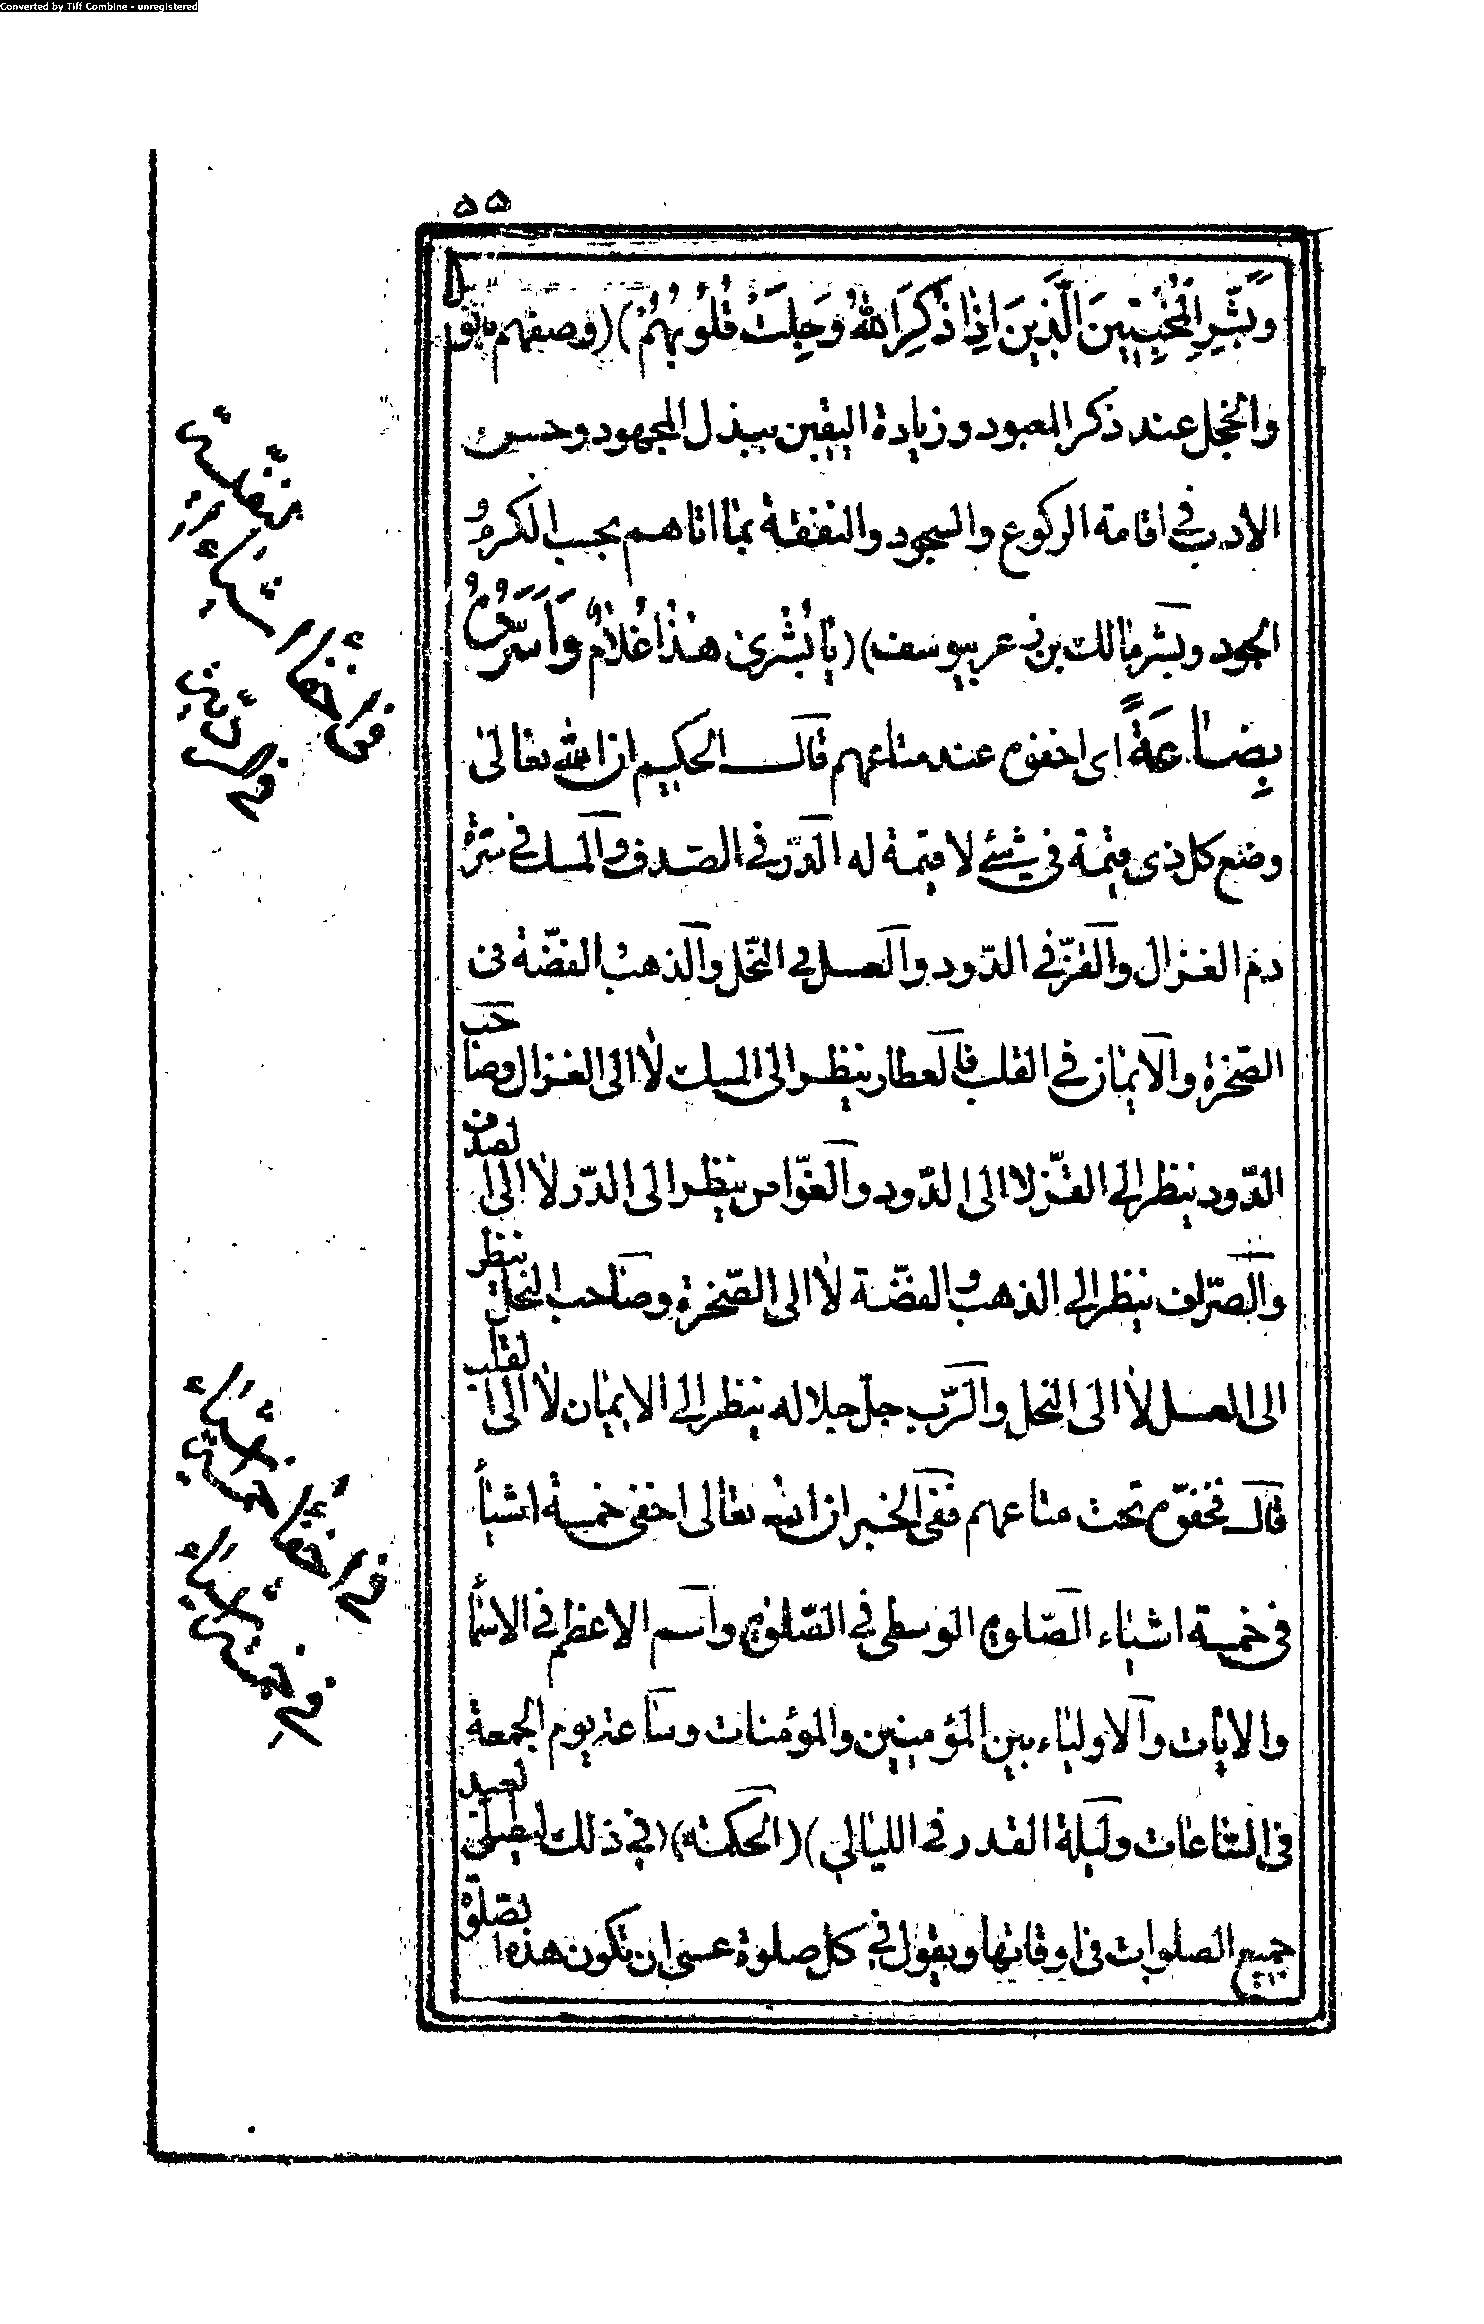 Converted by Tiff Combine - unregistered
٥٥
وَبَشِّرِ الْمُخْبِتِينَ الَّذِينَ اِذَا ذُكِرَ اللهُ وَجِلَتْ قُلُوبُهُمْ) (وصفهم بالو
والخجل عند ذكر المعبود وزيادة اليقين ببذل المجهود وحسن
الادب في اقامة الركوع والسجود والنفقة بما اتاهم بحسب الكرم و
الجود وبشر مالك بن عر بيوسف) (يَا بُشْرى هذَا غُلَامٌ وَاَسَرُّوهُ
بِضَاعَةً اى اخفوه عند متاعهم قال الحكيم ان الله تعالى
وضع كل ذى قيمة فى شئ لا قيمة له الدّر في الصّدف والمسك في سرّة
دم الغزال والقزّ في الدّود والعسل في النّحل والذهب والفضّة فى
الصّخرة والايمان في القلب فالعطار ينظر الى المسك لا الى الغزال وصاحب
الدّود ينظر الى القزّ لا الى الدّود والغوّاص ينظر الى الدّر لا الى الصدف
والصّراف ينظر الى الذهب والفضّة لا الى الصّخرة وصاحب النحل ينظر
الى العسل لا الى النحل والرّب جلّ جلاله ينظر الى الايمان لا الى القلب
قال فخفوّه تحت متاعهم ففى الخبر ان الله تعالى اخفى خمسة اشيأ
فى خمسة اشياء الصّلوة الوسطى في الصّلوة واسم الاعظم في الاسمأ
والايات والاولياء بين المؤمنين والمؤمنات وساعة يوم الجمعة
فى السّاعات وليلة القدر في الليالي) (الحكمة) (في ذلك ليصلي العبد
جميع الصلوات فى اوقاتها ويقول في كل صلوة عسى ان تكون هذه الصلوة
فى اخفأ اشيأ
فى اخفأ خمسة اشيأ
في خمسة اشيأ